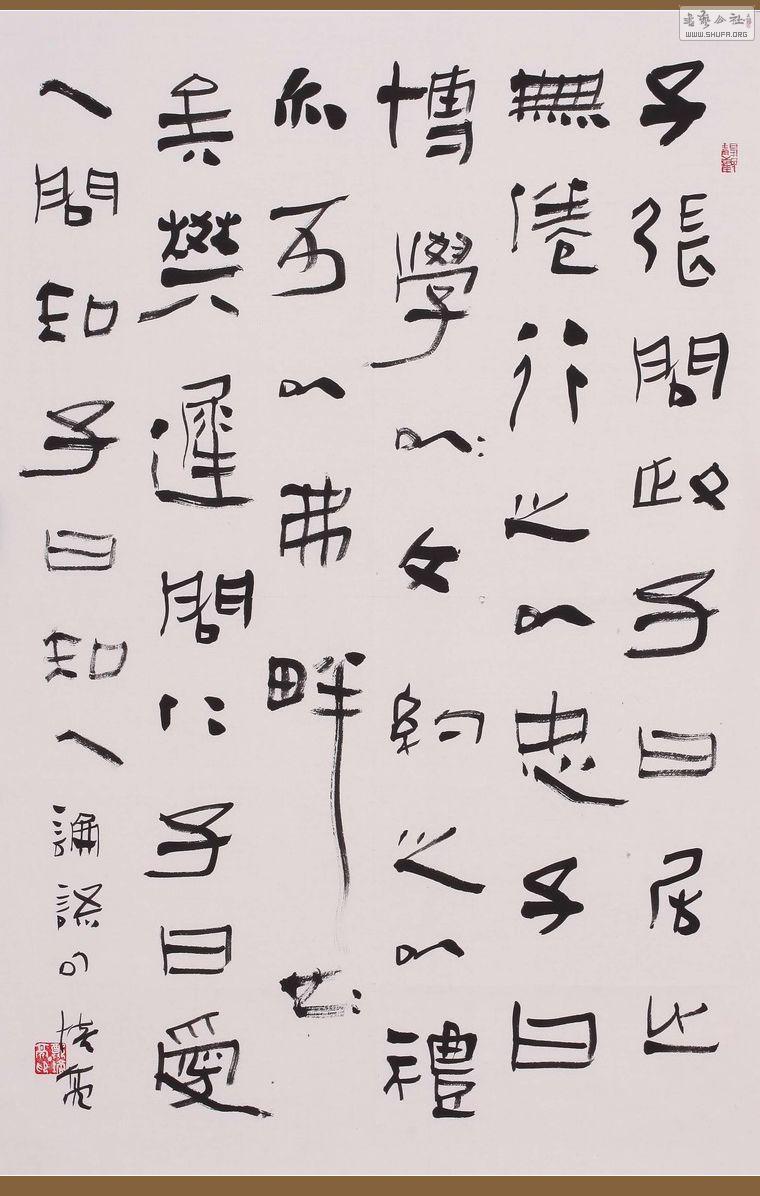 子張問政子曰居之
無倦行之以忠子曰
博學以文約之以禮
亦可以弗畔也
矣樊遲問仁子曰愛
人問知子曰知人
論語句 培亮
书艺公社
WWW.SHUFA.ORG